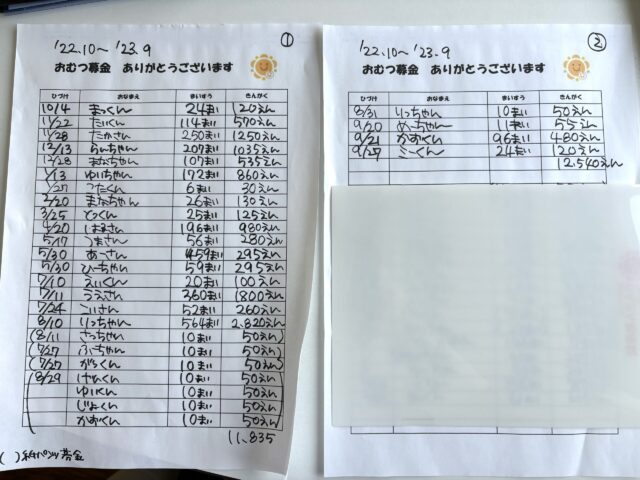 '22.10〜'23.9 ①
おむつ募金 ありがとうございます
ひづけ おなまえ まいすう きんがく
10/4 まっくん 24まい 120えん
11/22 たいくん 114まい 570えん
11/28 たかさん 250まい 1250えん
12/13 らんちゃん 207まい 1035えん
12/28 まなちゃん 107まい 535えん
1/13 ゆいちゃん 172まい 860えん
1/27 こたくん 6まい 30えん
2/20 まかちゃん 26まい 130えん
3/25 とっくん 25まい 125えん
4/20 はまさん 196まい 980えん
5/17 うまさん 56まい 280えん
5/30 あーさん 459まい 295えん
5/30 ひーちゃん 59まい 295えん
7/10 えいくん 20まい 100えん
7/11 うえさん 360まい 1800えん
7/24 こいさん 52まい 260えん
8/10 りっちゃん 564まい 2,820えん
(8/11 さっちゃん 10まい 50えん)
(7/27 ふーちゃん 10まい 50えん)
(7/27 がらくん 10まい 50えん)
(8/29 けんくん 10まい 50えん
ゆいくん 10まい 50えん
じょくん 10まい 50えん
かおくん 10まい 50えん)
11,835
( )紙パンツ募金
'22.10〜'23.9 ②
おむつ募金 ありがとうございます
ひづけ おなまえ まいすう きんがく
8/31 りっちゃん 10まい 50えん
9/20 めーちゃん 11まい 55えん
9/21 かおくん 96まい 480えん
9/27 こーくん 24まい 120えん
12,540えん